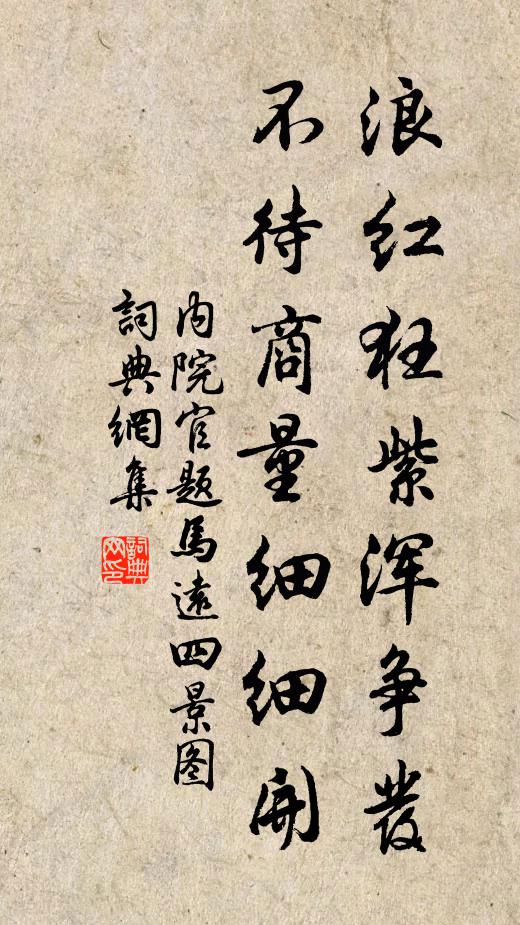 浪红狂紫浑争發
不待商量细细開
内院官题馬遠四景图
詞典網集
詞典网印